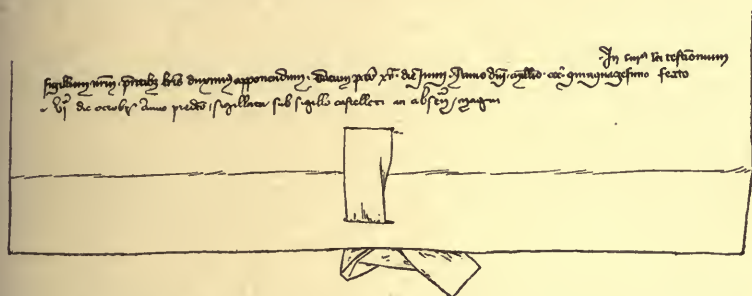 In cuiꝰ rei testimonium
sigillum nrm̄ pñtibꝫ lr̃is duximꝰ apponendum. Datum die Junii. Anno dñi millio. ccc° quinquagesimo sexto
vi die octobr̃ Anno predc̃o sigillata sub sigillo castelleti in absen̄ magni